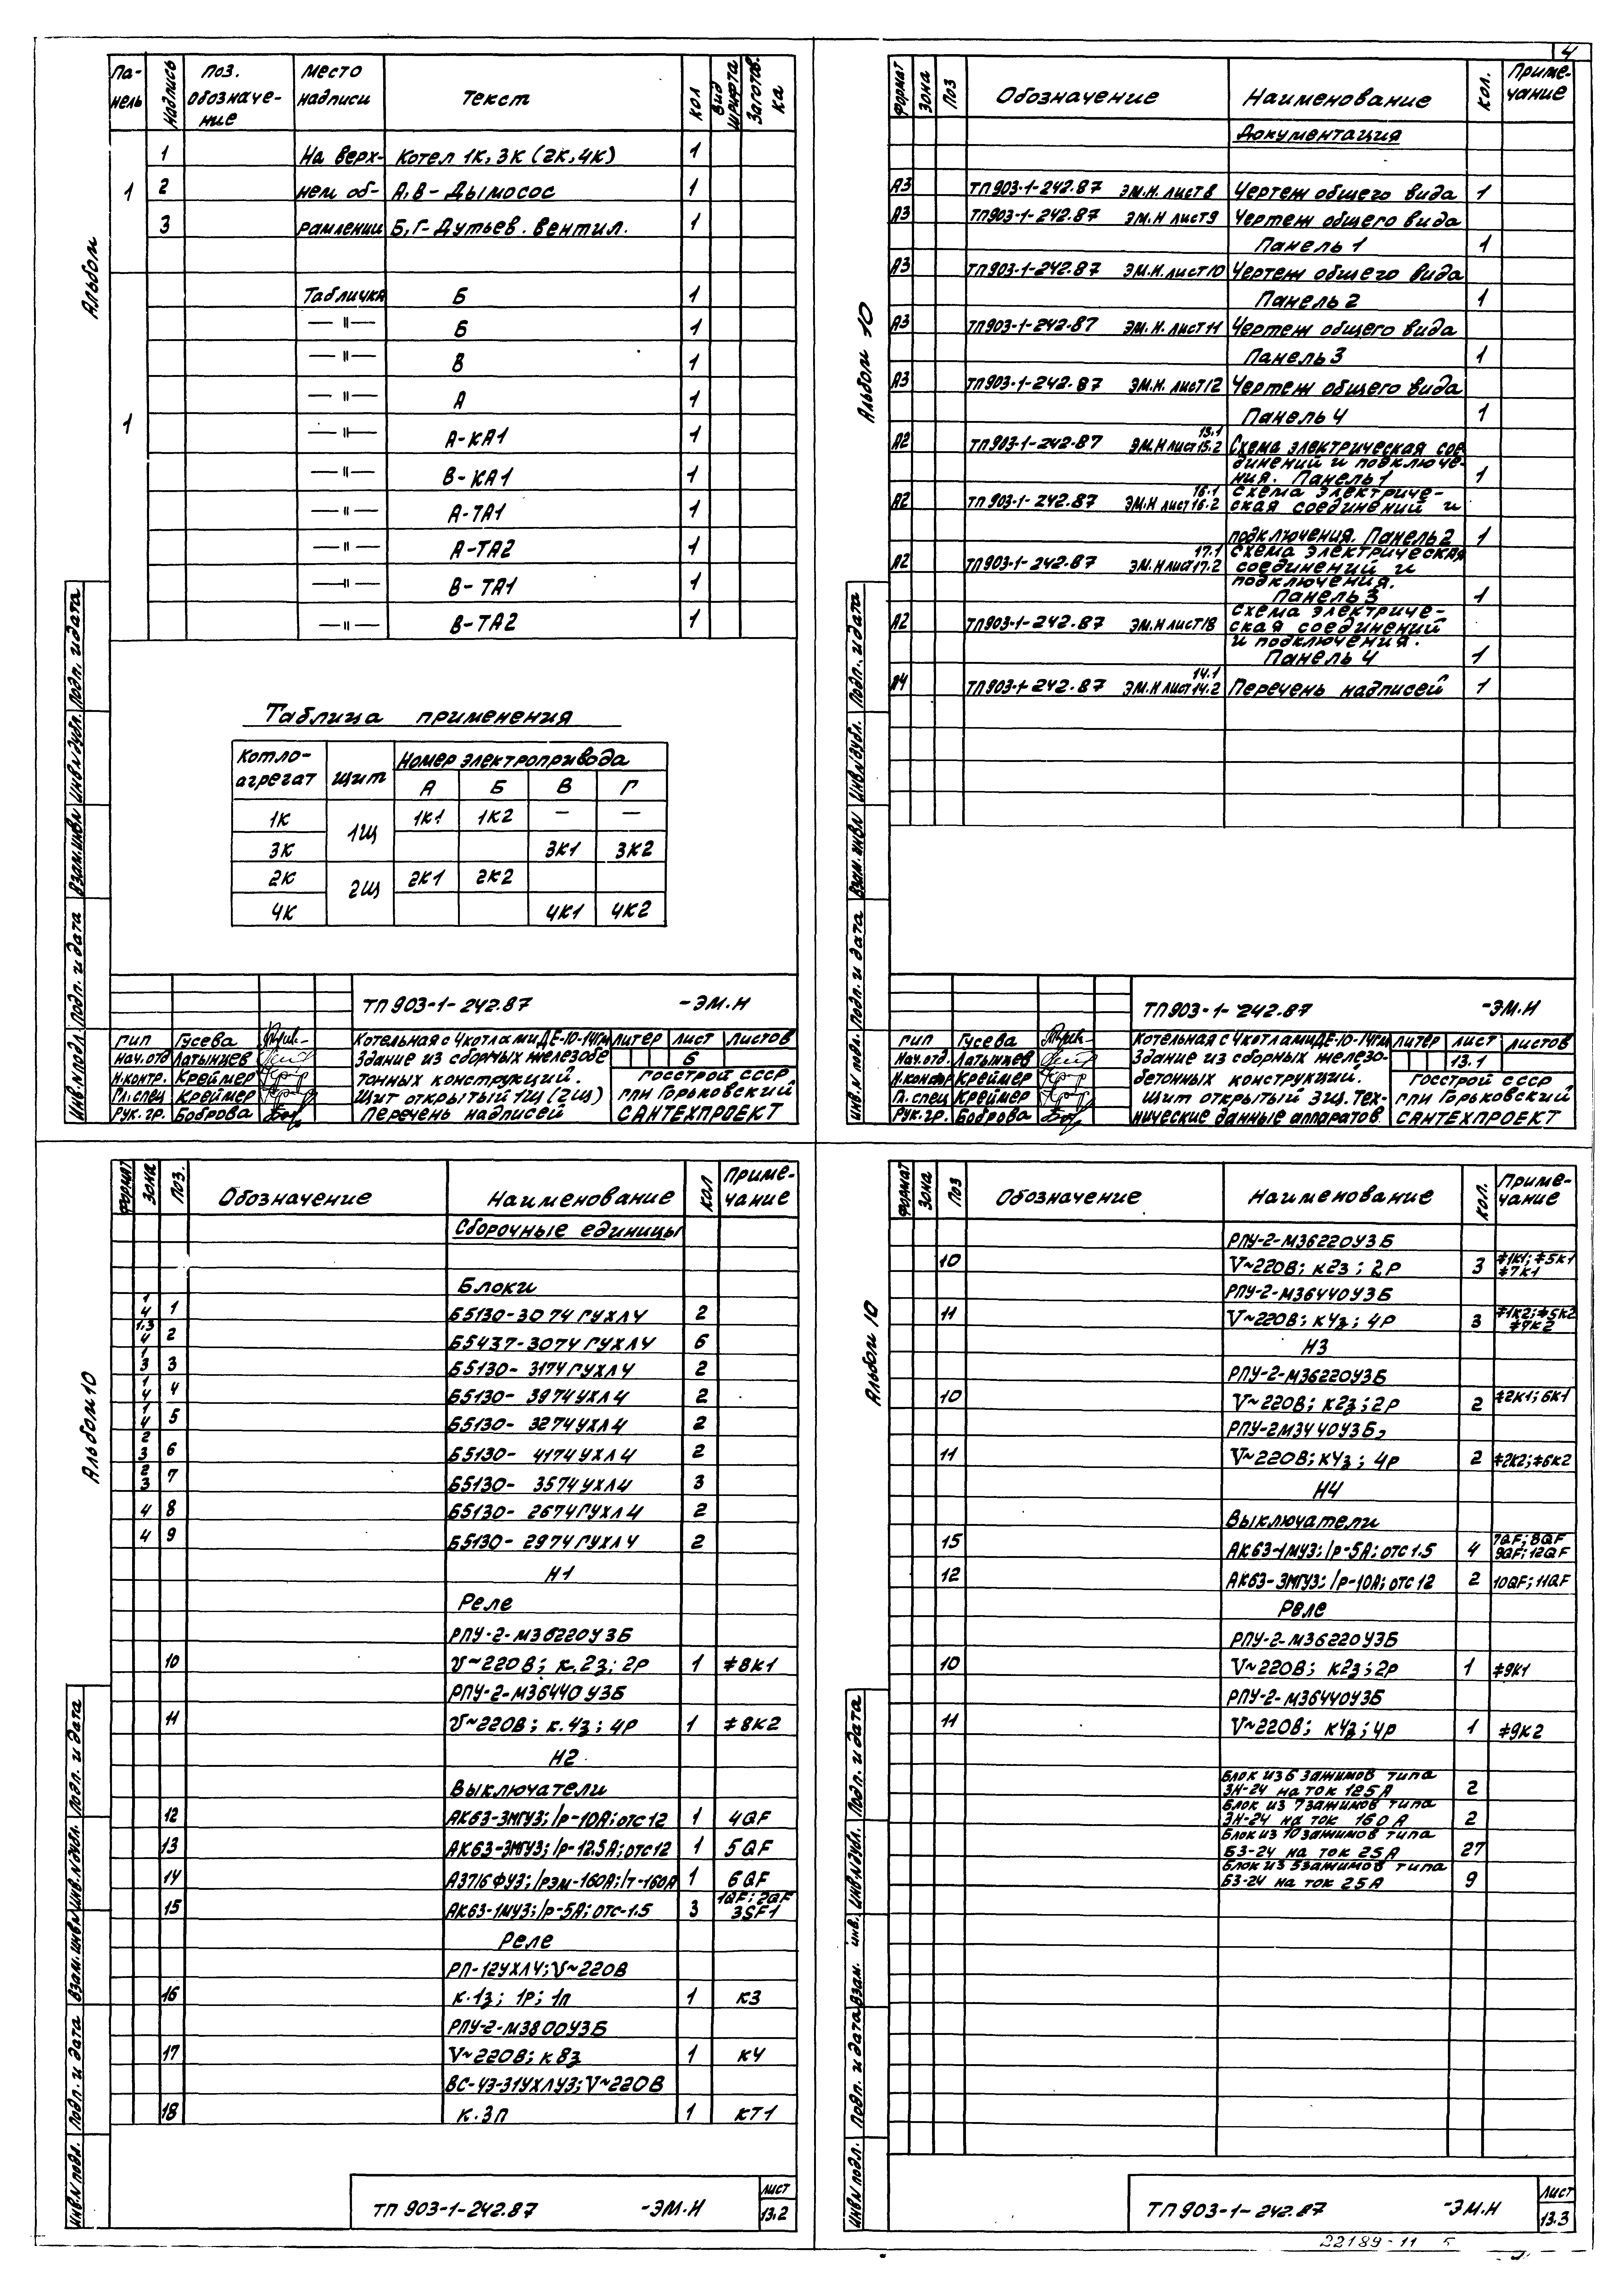 4
Альбом
Па-
нель
Надпись
Поз.
обозначе-
ние
Место
надписи
Текст
Кол
Вид
шрифта
Заготов.
ка
1
1 На верх- Котел 1К, 3К (2К, 4К) 1
2 нем об- А, В - Дымосос 1
3 рамлении Б, Г - Дутьев. вентил. 1
1
Табличка Б 1
— II — Б 1
— II — В 1
— II — А 1
— II — А-КА1 1
— II — В-КА1 1
— II — А-ТА1 1
— II — А-ТА2 1
— II — В-ТА1 1
— II — В-ТА2 1
Таблица применения
Котло-
агрегат
Щит
Номер электропривода
А Б В Г
1К 1Щ 1К1 1К2 — —
3К 3К1 3К2
2К 2Щ 2К1 2К2
4К 4К1 4К2
ТП 903-1-242.87 -ЭМ.Н
ГИП Гусева
Нач.отд Латынцев
Н.контр. Креймер
Гл.спец Креймер
Рук.гр. Боброва
Котельная с 4 котлами ДЕ-10-14ГМ
Здание из сборных железобе
тонных конструкций.
Щит открытый 1Щ (2Щ)
Перечень надписей
Литер Лист Листов
6
Госстрой СССР
ГПИ Горьковский
САНТЕХПРОЕКТ
Инв.N подл. Подп. и дата Взам.инв.N Инв.N дубл. Подп. и дата
Альбом 10
Формат Зона Поз Обозначение Наименование Кол. Приме-
чание
Документация
А3 ТП903-1-242.87 ЭМ.Н. лист 8 Чертеж общего вида 1
А3 ТП903-1-242.87 ЭМ.Н лист 9 Чертеж общего вида
Панель 1 1
А3 ТП903-1-242.87 ЭМ.Н. лист 10 Чертеж общего вида
Панель 2 1
А3 ТП903-1-242.87 ЭМ.Н. лист 11 Чертеж общего вида
Панель 3 1
А3 ТП903-1-242.87 ЭМ.Н. лист 12 Чертеж общего вида
Панель 4 1
А2 ТП903-1-242.87 ЭМ.Н лист 15.1 15.2 Схема электрическая сое
динений и подключе-
ния. Панель 1 1
А2 ТП903-1-242.87 ЭМ.Н лист 16.1 16.2 Схема электриче-
ская соединений и
подключения. Панель 2 1
А2 ТП903-1-242.87 ЭМ.Н лист 17.1 17.2 Схема электрическая
соединений и
подключения.
Панель 3 1
А2 ТП903-1-242.87 ЭМ.Н лист 18 Схема электриче-
ская соединений
и подключения.
Панель 4 1
А4 ТП903-1-242.87 ЭМ.Н лист 14.1 14.2 Перечень надписей 1
ТП 903-1-242.87 -ЭМ.Н
ГИП Гусева
Нач.отд. Латынцев
Н.контр Креймер
Гл.спец Креймер
Рук.гр. Боброва
Котельная с 4 котлами ДЕ-10-14ГМ
Здание из сборных железо-
бетонных конструкций.
Щит открытый 3Щ. Тех-
нические данные аппаратов
Литер Лист Листов
13.1
Госстрой СССР
ГПИ Горьковский
САНТЕХПРОЕКТ
Инв.N подл. Подп. и дата Взам.инв.N Инв.N дубл. Подп. и дата
Альбом 10
Формат Зона Поз. Обозначение Наименование Кол Приме-
чание
Сборочные единицы
Блоки
1 4 1 Б5130-3074 ГУХЛ4 2
1.3 4 2 Б5437-3074 ГУХЛ4 6
1 3 3 Б5130-3174 ГУХЛ4 2
1 4 4 Б5130-3974 УХЛ4 2
1 4 5 Б5130-3274 УХЛ4 2
2 3 6 Б5130-4174 УХЛ4 2
2 3 7 Б5130-3574 УХЛ4 3
4 8 Б5130-2674 ГУХЛ4 2
4 9 Б5130-2974 ГУХЛ4 2
Н1
Реле
РПУ-2-М36220У3Б
10 V~220В; к.2з; 2р 1 ≠8К1
РПУ-2-М36440У3Б
11 V~220В; к.4з; 4р 1 ≠8К2
Н2
Выключатели
12 АК63-3МГУ3; Iр-10А; отс 12 1 4QF
13 АК63-3МГУ3; Iр-12.5А; отс 12 1 5QF
14 А3716ФУ3; Iрэм-160А; Iт-160А 1 6QF
15 АК63-1МУ3; Iр-5А; отс-1.5 3 1QF; 2QF
3SF1
Реле
РП-12УХЛ4; V~220В
16 к.1з; 1р; 1п 1 К3
РПУ-2-М3800У3Б
17 V~220В; к 8з 1 К4
ВС-43-31УХЛУ3; V~220В
18 к.3п 1 КТ1
ТП 903-1-242.87 -ЭМ.Н
Лист
13.2
Инв.N подл. Подп. и дата Взам.инв.N Инв.N дубл. Подп. и дата
Альбом 10
Формат Зона Поз Обозначение Наименование Кол. Приме-
чание
РПУ-2-М36220У3Б
10 V~220В; к2з; 2р 3 ≠1К1; ≠5К1
≠7К1
РПУ-2-М36440У3Б
11 V~220В; к4з; 4р 3 ≠1К2; ≠5К2
≠7К2
Н3
РПУ-2-М36220У3Б
10 V~220В; к2з; 2р 2 ≠2К1; 6К1
РПУ-2М3440У3Б,
11 V~220В; к4з; 4р 2 ≠2К2; ≠6К2
Н4
Выключатели
15 АК63-1МУ3; Iр-5А; отс 1.5 4 7QF; 8QF
9QF; 12QF
12 АК63-3МГУ3; Iр-10А; отс 12 2 10QF; 11QF
Реле
РПУ-2-М36220У3Б
10 V~220В; к2з; 2р 1 ≠9К1
РПУ-2-М36440У3Б
11 V~220В; к4з; 4р 1 ≠9К2
Блок из 6 зажимов типа
ЗН-24 на ток 125А 2
Блок из 7 зажимов типа
ЗН-24 на ток 160А 2
Блок из 10 зажимов типа
БЗ-24 на ток 25А 27
Блок из 5 зажимов типа
БЗ-24 на ток 25А 9
ТП 903-1-242.87 -ЭМ.Н
Лист
13.3
Инв.N подл. Подп. и дата Взам. инв. Инв.N дубл. Подп. и дата
22189-11 5